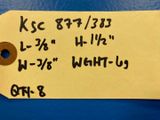 KSC 877/383
L-3/8" H-1 1/2"
W-3/8" WGHT-6g
QTY-8